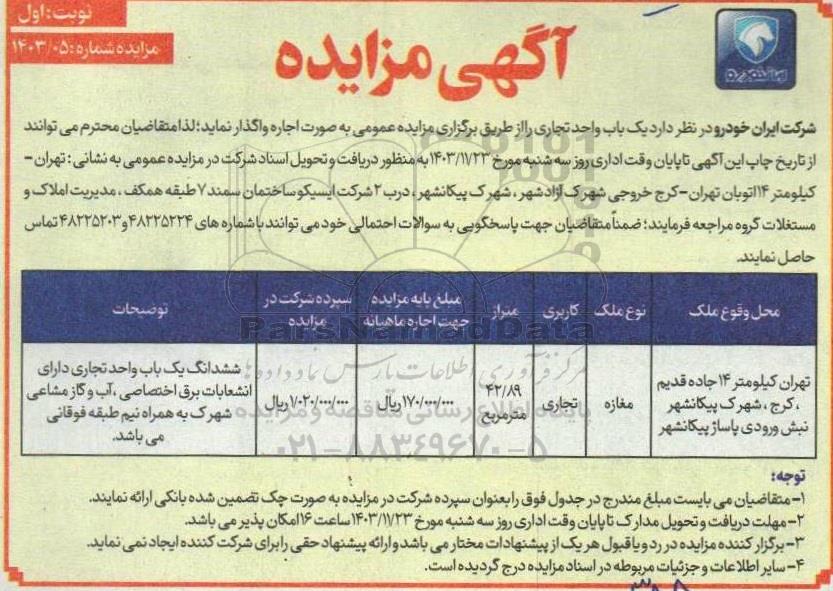 نوبت: اول
مزایده شماره: ۱۴۰۳/۰۵
آگهی مزایده
ایران خودرو
شرکت ایران خودرو در نظر دارد یک باب واحد تجاری را از طریق برگزاری مزایده عمومی به صورت اجاره واگذار نماید؛ لذا متقاضیان محترم می توانند
از تاریخ چاپ این آگهی تا پایان وقت اداری روز سه شنبه مورخ ۱۴۰۳/۱۱/۲۳ به منظور دریافت و تحویل اسناد شرکت در مزایده عمومی به نشانی: تهران -
کیلومتر ۱۴ اتوبان تهران - کرج خروجی شهرک آزادشهر، شهرک پیکانشهر، درب ۲ شرکت ایسیکو ساختمان سمند ۷ طبقه همکف، مدیریت املاک و
مستغلات گروه مراجعه فرمایند؛ ضمناً متقاضیان جهت پاسخگویی به سوالات احتمالی خود می توانند با شماره های ۴۸۲۲۵۲۲۴ و ۴۸۲۲۵۲۰۳ تماس
حاصل نمایند.
محل وقوع ملک | نوع ملک | کاربری | متراژ | مبلغ پایه مزایده جهت اجاره ماهیانه | سپرده شرکت در مزایده | توضیحات
تهران کیلومتر ۱۴ جاده قدیم
، کرج، شهرک پیکانشهر
نبش ورودی پاساژ پیکانشهر
مغازه
تجاری
۴۲/۸۹
مترمربع
۱۷۰/۰۰۰/۰۰۰ ریال
۱/۰۲۰/۰۰۰/۰۰۰ ریال
ششدانگ یک باب واحد تجاری دارای
انشعابات برق اختصاصی، آب و گاز مشاعی
شهرک به همراه نیم طبقه فوقانی
می باشد.
ParsNamadData
مرکز فرآوری اطلاعات پارس نماد داده ها
پایگاه اطلاع رسانی مناقصه و مزایده
۰۲۱-۸۸۳۴۹۶۷۰-۵
توجه:
۱- متقاضیان می بایست مبلغ مندرج در جدول فوق را بعنوان سپرده شرکت در مزایده به صورت چک تضمین شده بانکی ارائه نمایند.
۲- مهلت دریافت و تحویل مدارک تا پایان وقت اداری روز سه شنبه مورخ ۱۴۰۳/۱۱/۲۳ ساعت ۱۶ امکان پذیر می باشد.
۳- برگزار کننده مزایده در رد و یا قبول هر یک از پیشنهادات مختار می باشد و ارائه پیشنهاد حقی را برای شرکت کننده ایجاد نمی نماید.
۴- سایر اطلاعات و جزئیات مربوطه در اسناد مزایده درج گردیده است.